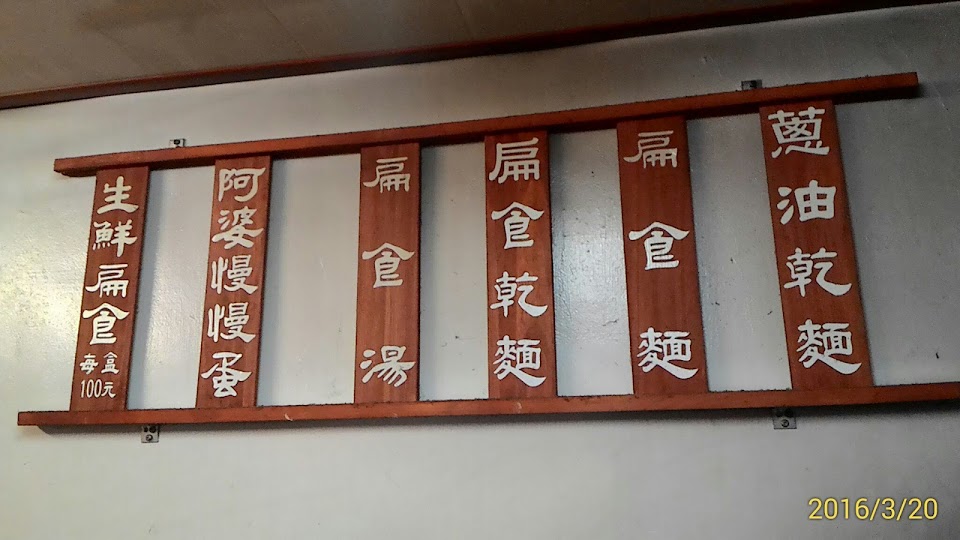 蔥油乾麵
扁食麵
扁食乾麵
扁食湯
阿婆慢慢蛋
生鮮扁食
每盒
100元
2016/3/20